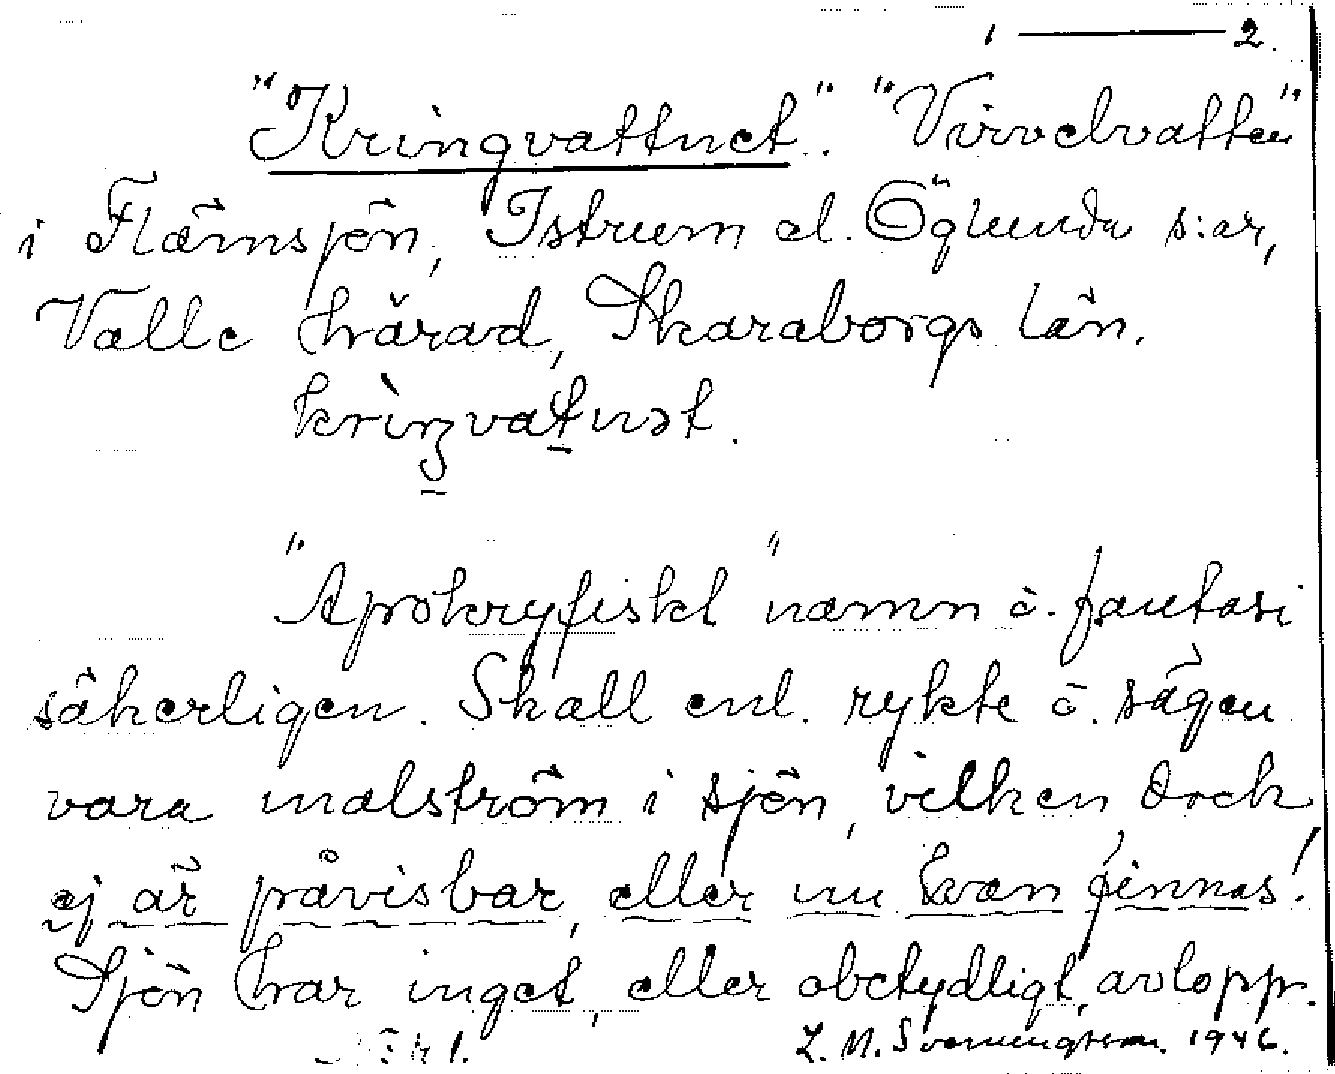 1 — 2.
"Kringvattnet". "Virvelvatten"
i Flämsjön, Istrum el. Öglunda s:ar,
Valle härad, Skaraborgs län.
krìŋvatnət.
"Apokryfiskt" namn o. fantasi
säkerligen. Skall enl. rykte o. sägen
vara malström i sjön, vilken dock
ej är påvisbar, eller nu kan finnas!
Sjön har inget, eller obetydligt, avlopp.
1946.